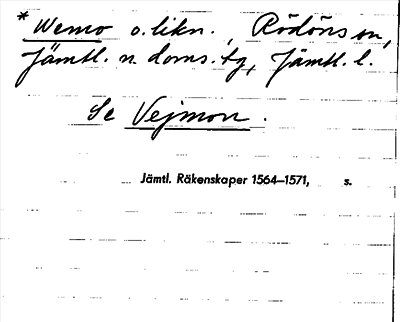 * Wemo o. likn., Rödöns sn,
Jämtl. n. doms. tg, Jämtl. l.
Se Vejmon.
Jämtl. Räkenskaper 1564–1571, s.